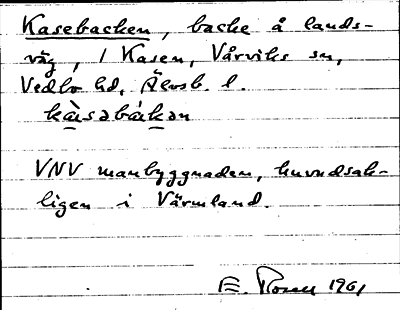 Kasebacken, backe å lands-
väg, 1 Kasen, Vårviks sn,
Vedbo hd, Älvsb. l.
VNV manbyggnaden, huvudsak-
ligen i Värmland.
E. 1961